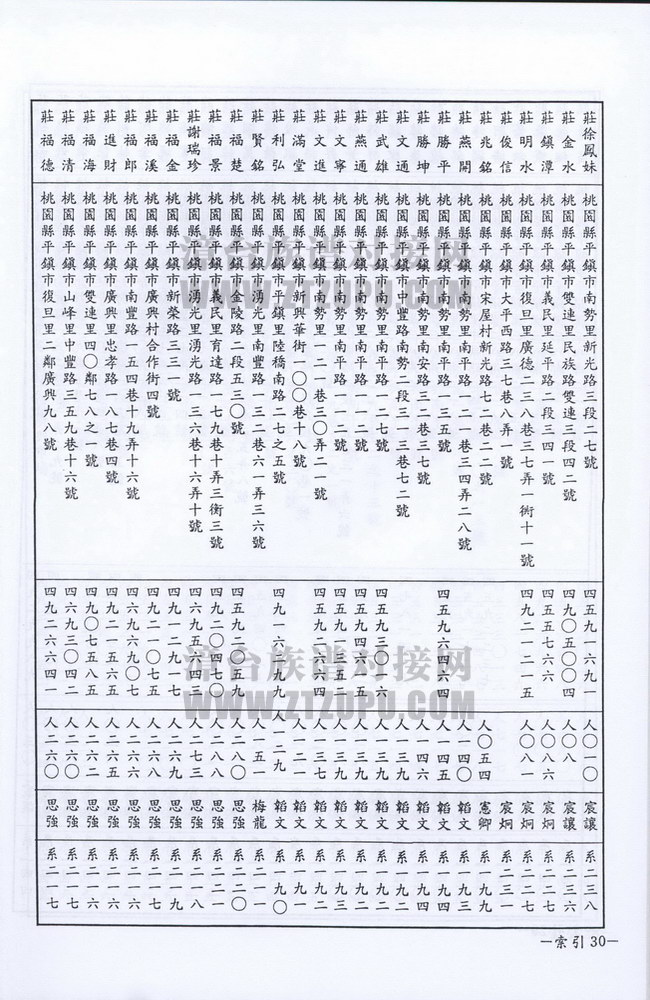 莊徐鳳妹 桃園縣平鎮市南勢里新光路三段二七號 四五九一六九一 人〇一〇 宸讓 系二三八
莊金水 桃園縣平鎮市雙連里民族路雙連三段四二號 四九〇五〇〇四 人〇八 宸讓 系二三六
莊鎮潭 桃園縣平鎮市義民里延平路二段三四一號 四五五七六六 人〇八六 宸炯 系二二七
莊明水 桃園縣平鎮市復旦里廣德二三八巷三七弄一衖十一號 四九二一二一五 人〇八一 宸炯 系二二七
莊俊信 桃園縣平鎮市大平西路三七巷八弄一號 宸炯 系二三一
莊兆銘 桃園縣平鎮市宋屋村新光路七二巷二二號 人〇五四 憲卿 系一九九
莊燕開 桃園縣平鎮市南勢里南平路一二一巷三四弄二八號 人一四〇 韜文 系一九三
莊勝平 桃園縣平鎮市南勢里南平路一三五號 四五九六四六四 人一四五 韜文 系一九四
莊勝坤 桃園縣平鎮市南勢里南安路三二巷三七號 人一四六 韜文 系一九四
莊文通 桃園縣平鎮市中豐路南勢二段三一三巷七二號 人一三九 韜文 系一九二
莊武雄 桃園縣平鎮市南勢里南平路一二七號 四五九三〇六 人一四一 韜文
莊燕通 桃園縣平鎮市南勢里南平路一一二號 人一三九 韜文 系一九二
莊文寧 桃園縣平鎮市南勢里南平路一一二號 人一三九 韜文 系一九三
莊文進 桃園縣平鎮市南勢里一二一巷三〇弄二一號 四五九二六六四 人一三七 韜文 系一九二
莊滿堂 桃園縣平鎮市新興華街一〇〇巷十八號 人一二一 韜文 系一九一
莊利弘 桃園縣平鎮市平鎮里陸橋南路二七之五號 人一二九 韜文 系一九〇
莊賢銘 桃園縣平鎮市湧光里南豐路一三二巷六一弄三六號 人一五一 梅龍 系二一一
莊福楚 桃園縣平鎮市金陵路二段五三〇號 人二八〇 思強 系二二〇
莊福景 桃園縣平鎮市義民里育達路一七九巷十弄三衡三號 四九二〇四七〇 人二八八 思強 系二二一
莊謝瑞珍 桃園縣平鎮市湧光里湧光路一三六巷十六弄十號 四六九五六四三 人二七三 思強 系二一八
莊福金 桃園縣平鎮市新榮路三三一號 四九一二九一七 人二六九 思強 系二一九
莊福溪 桃園縣平鎮市廣興村合作街四號 四九二一〇七五 人二六八 思強 系二一七
莊福郎 桃園縣平鎮市南豐路一五四巷十九弄十六號 四六九一六九〇七 人二六六 思強 系二一七
莊進財 桃園縣平鎮市廣興里忠孝路一八七巷四號 四九二一五六四 人二六五 思強 系二一六
莊福海 桃園縣平鎮市雙連里四〇鄰七八之一號 四九〇七五八五 人二六二 思強 系二一六
莊福清 桃園縣平鎮市山峰里中豐路三五九巷十六號 四六九三〇四二 人二六一 思強 系二一七
莊福德 桃園縣平鎮市復旦里二鄰廣興九八號 四九二六六四一 人二六〇 思強 系二一七
—索引30—
漳台族谱对接网
WWW.ZTZUPU.COM
漳台族谱对接网
WWW.ZTZUPU.COM